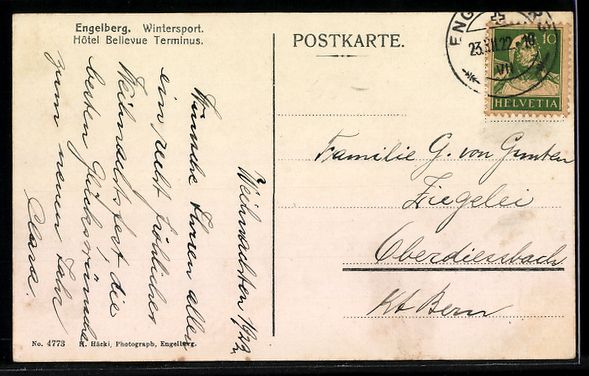 Engelberg. Wintersport.
Hôtel Bellevue Terminus.
POSTKARTE.
23.XII.22.-10
VII
10
HELVETIA
Weihnachten 1922
Wünsche Ihnen allen
ein recht fröhliches
Weihnachtsfest, die
besten Glückswünsche
zum neuen Jahr
Clara.
Familie G. von Gunten
Ziegelei
Oberdiessbach
Kt Bern
No. 4773 R. Häcki, Photograph, Engelberg.